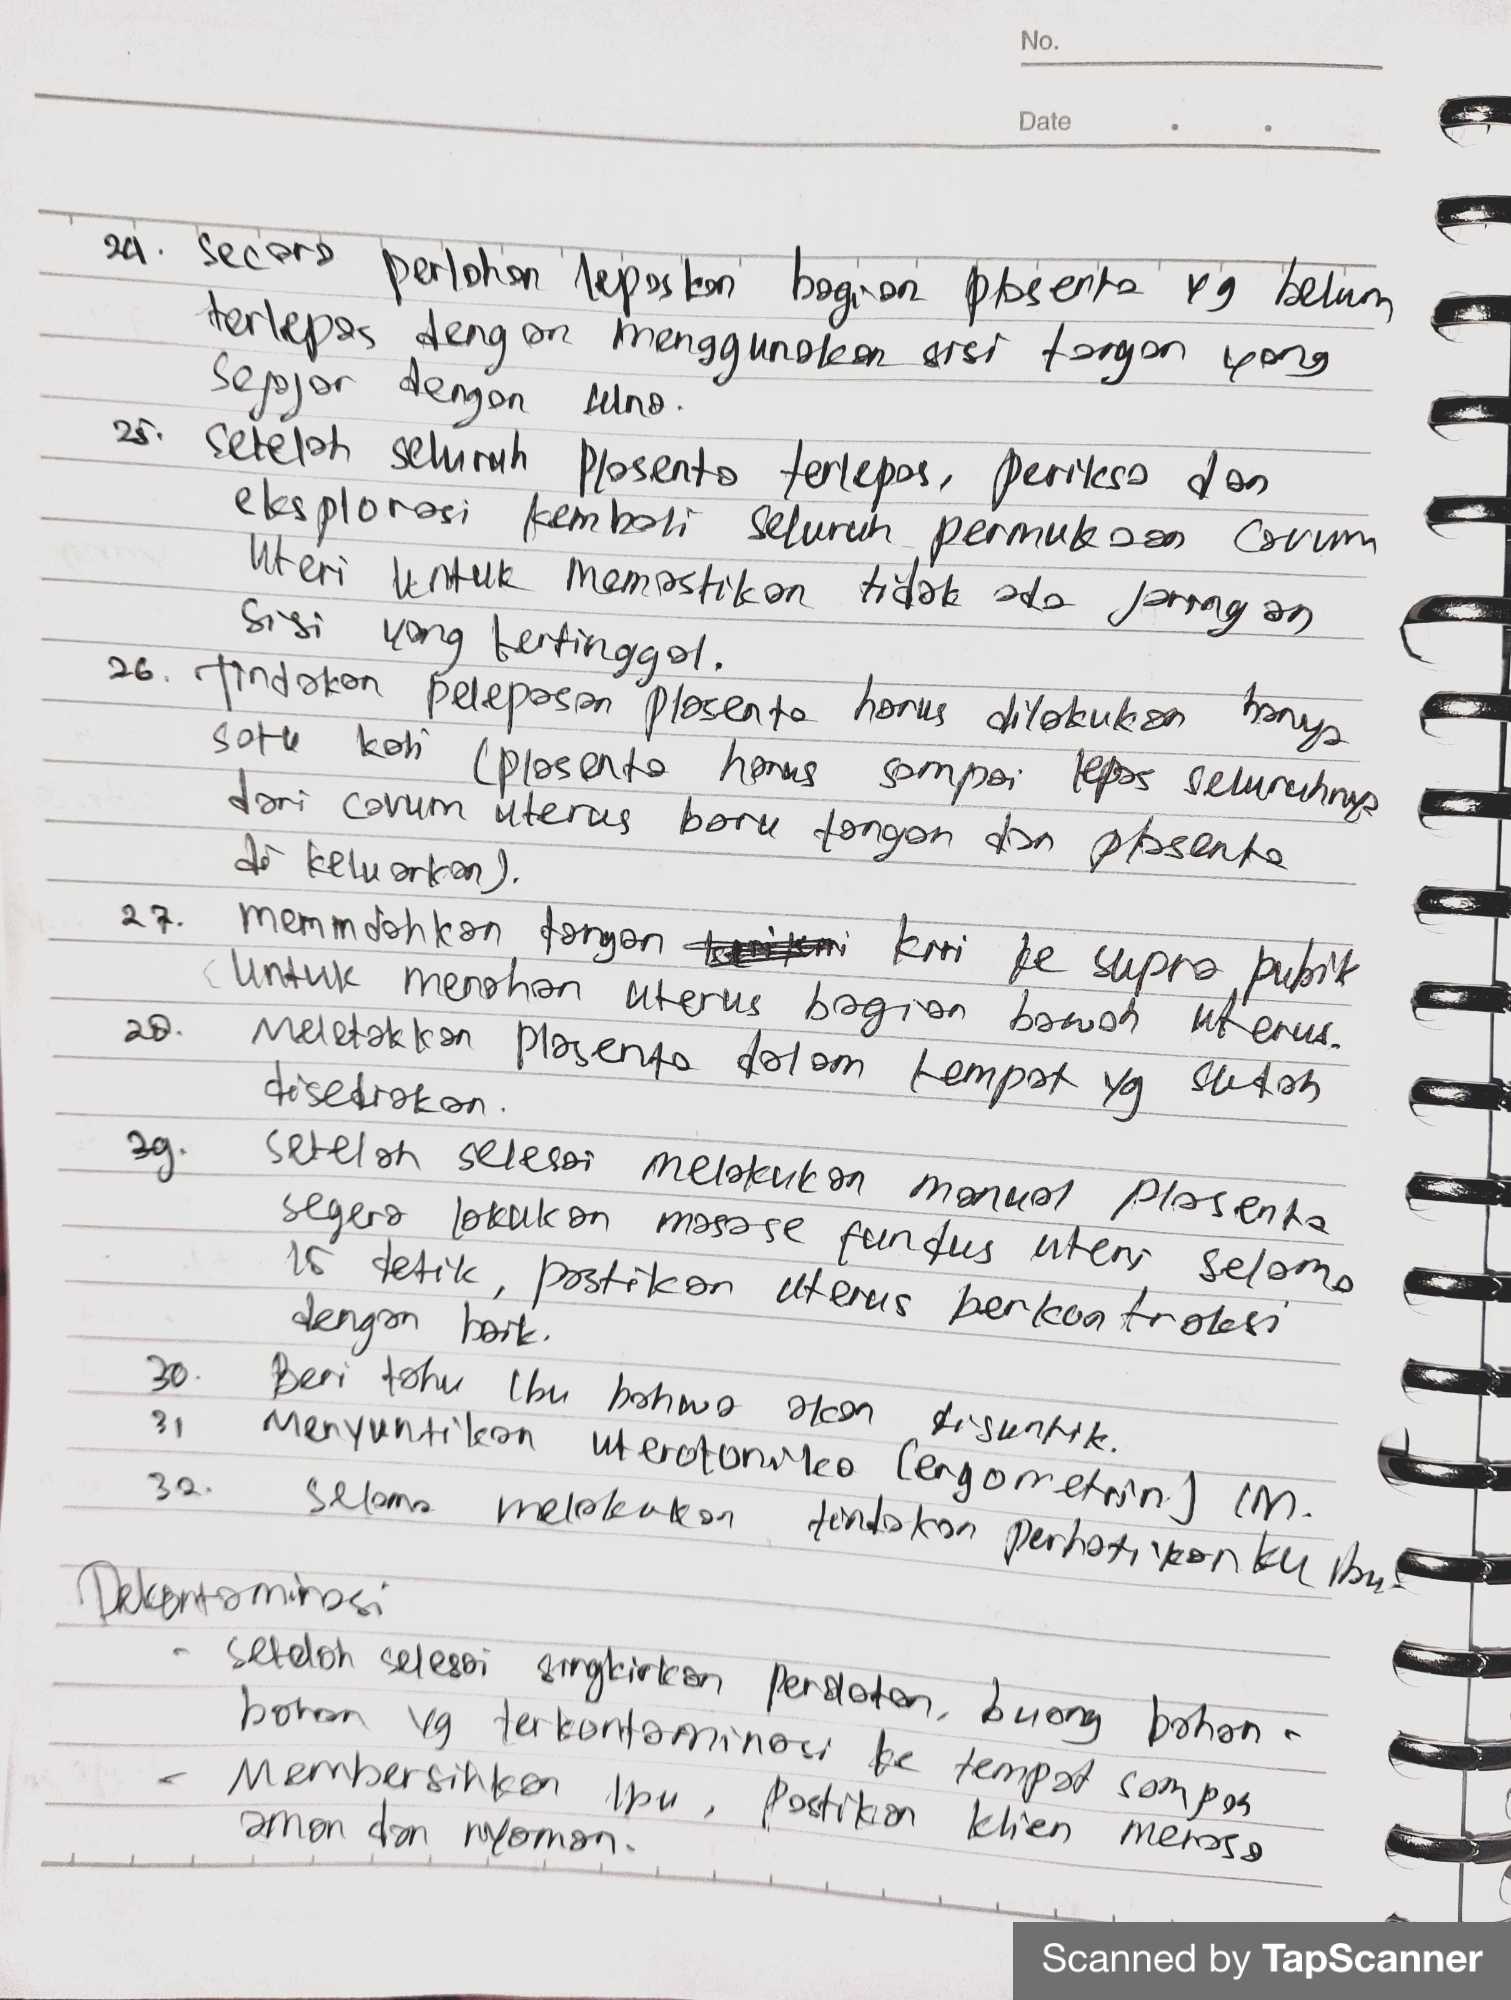 No.
Date
24. Secara perlahan lepaskan bagian plasenta yg belum
terlepas dengan menggunakan sisi tangan yang
sejajar dengan ulna.
25. Setelah seluruh plasenta terlepas, periksa dan
eksplorasi kembali seluruh permukaan cavum
uteri untuk memastikan tidak ada jaringan
sisi yang tertinggal.
26. Tindakan pelepasan plasenta harus dilakukan hanya
satu kali (plasenta harus sampai lepas seluruhnya
dari cavum uterus baru tangan dan plasenta
di keluarkan).
27. Memindahkan tangan kiri ke supra pubik
untuk menahan uterus bagian bawah uterus.
28. Meletakkan plasenta dalam tempat yg sudah
disediakan.
39. Setelah selesai melakukan manual plasenta
segera lakukan masase fundus uteri selama
15 detik, pastikan uterus berkontraksi
dengan baik.
30. Beri tahu Ibu bahwa akan disuntik.
31 Menyuntikan uterotonika (ergometrin) IM.
32. Selama melakukan tindakan perhatikan KU Ibu.
Dekontaminasi
- Setelah selesai singkirkan peralatan, buang bahan -
bahan yg terkontaminasi ke tempat sampah
- Membersihkan Ibu, Pastikan klien merasa
aman dan nyaman.
Scanned by TapScanner